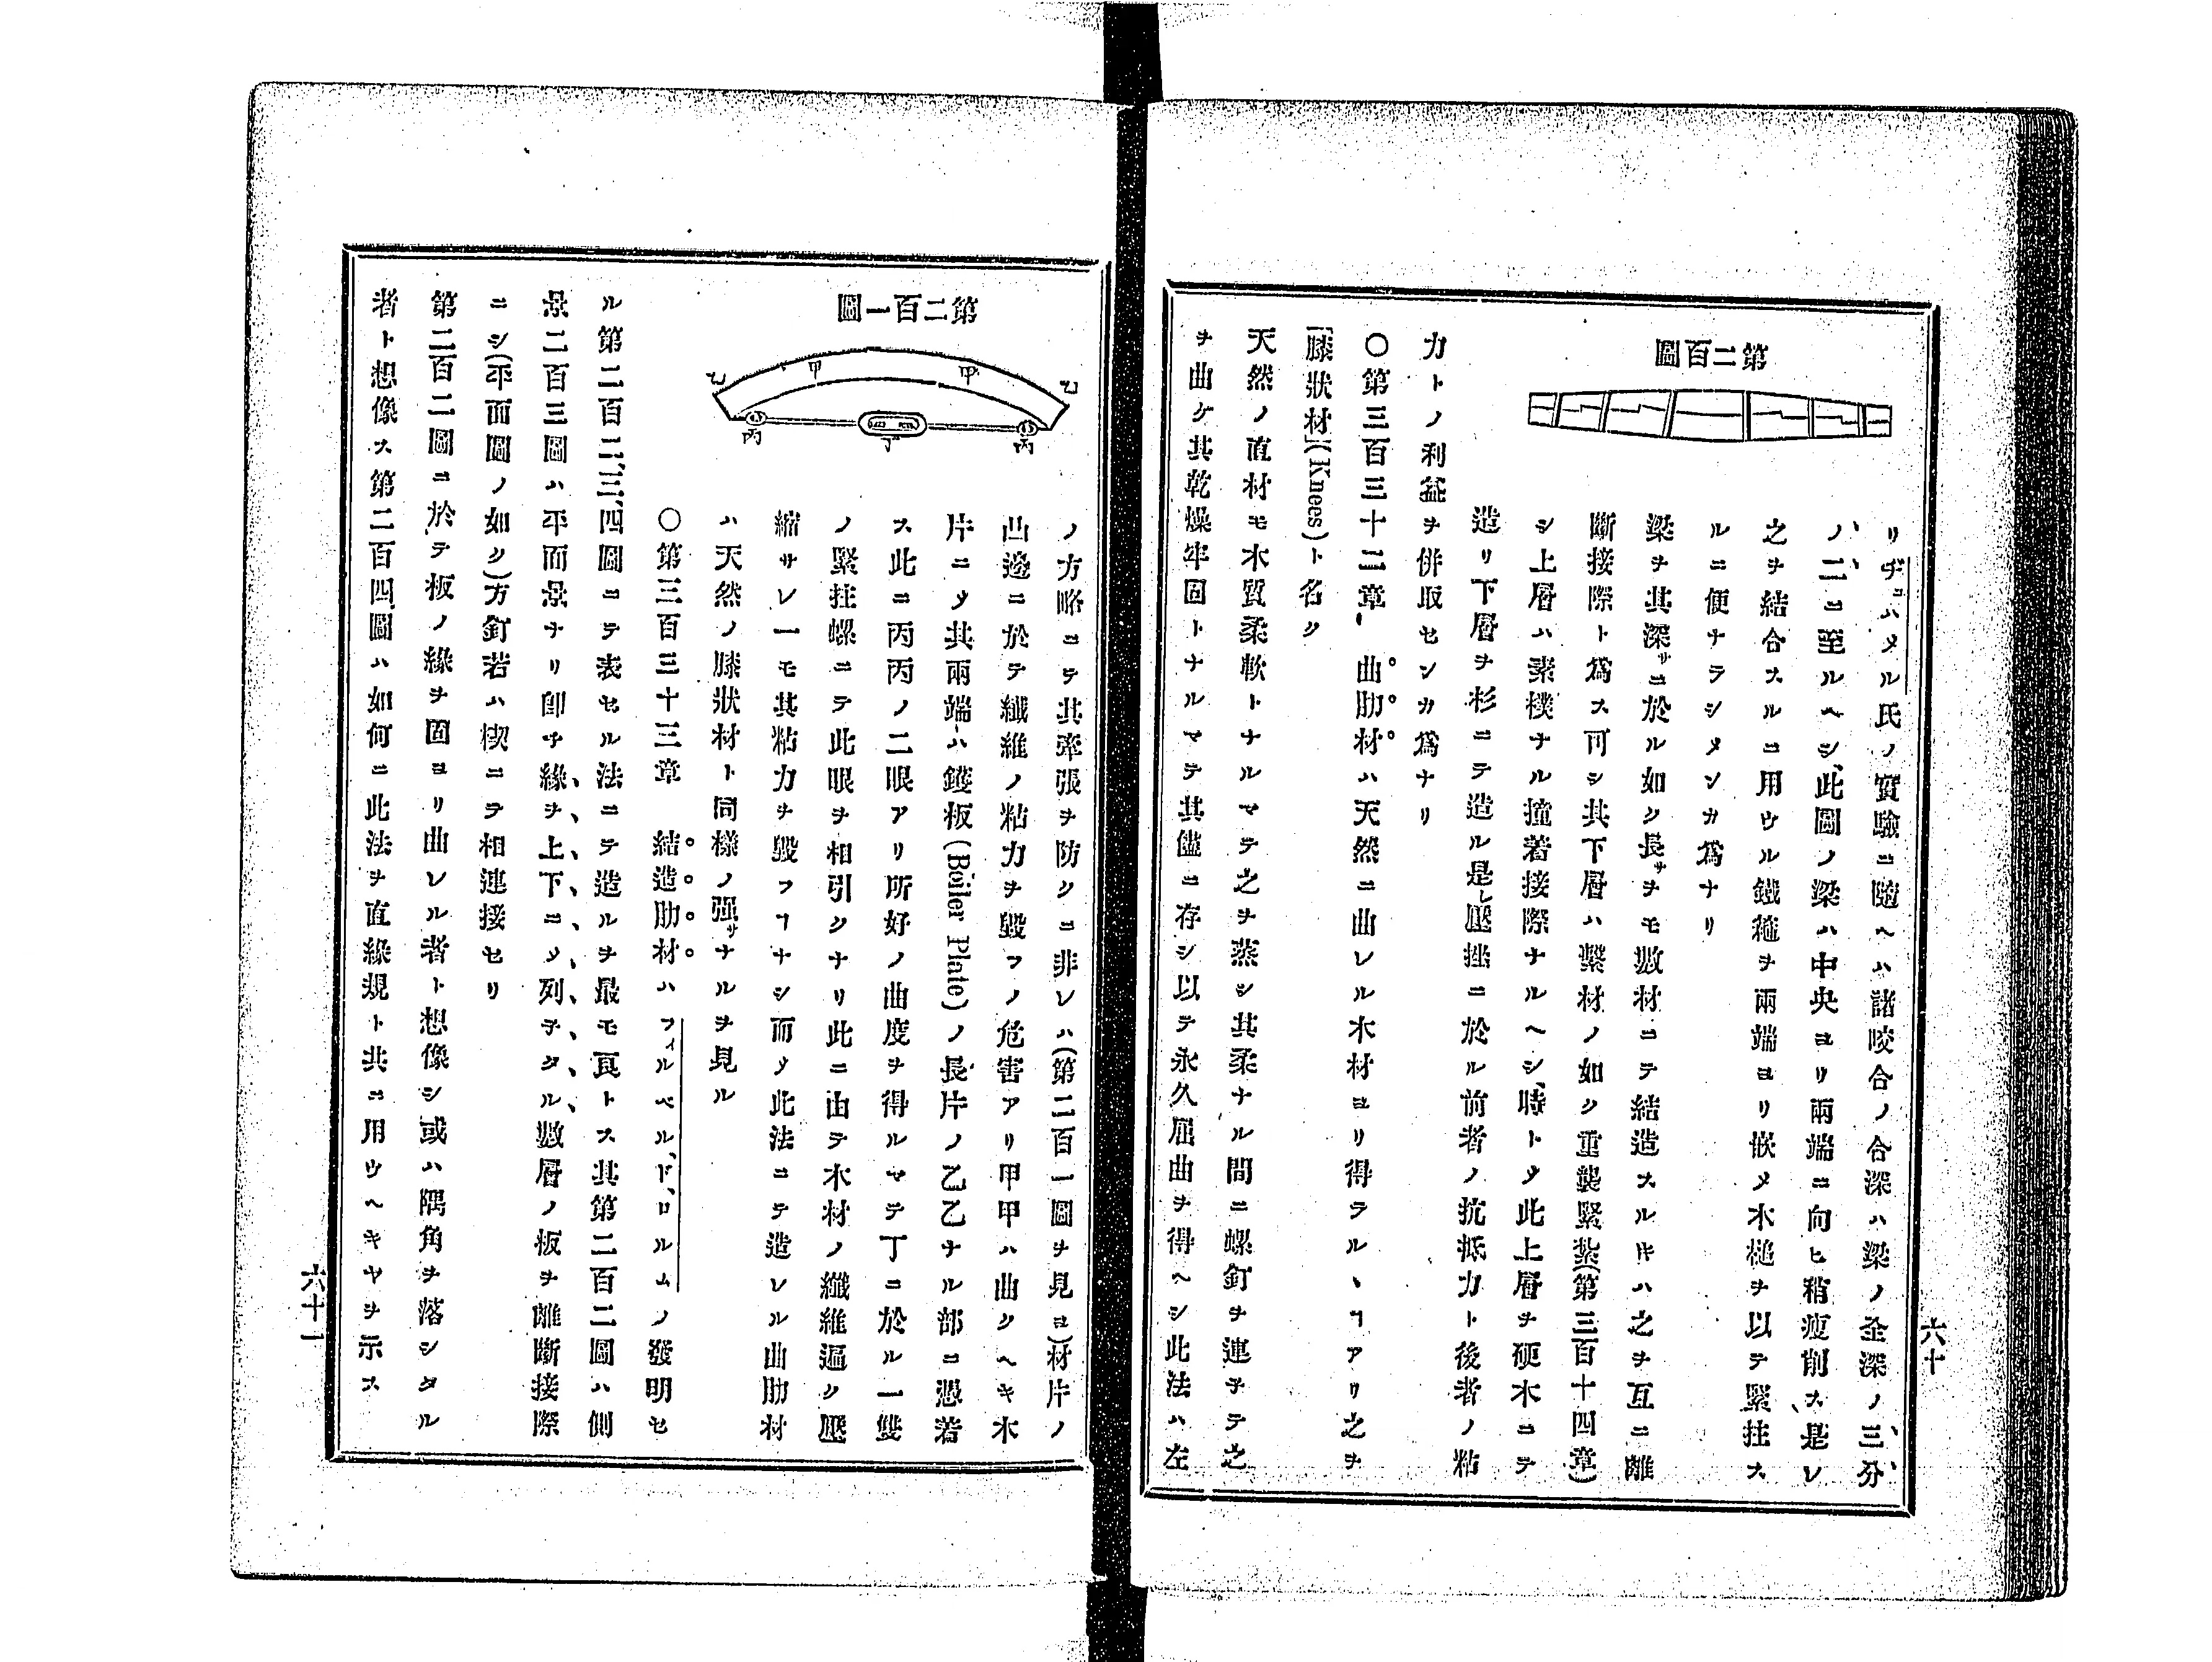 第二百圖
リヂュハメル氏ノ實驗ニ隨ヘハ諸咬合ノ合深ハ梁ノ全深ノ三分
ノ二ニ至ルヘシ、此圖ノ梁ハ中央ヨリ兩端ニ向ヒ稍瘦削ス、是レ
之ヲ結合スルニ用ウル鐵箍ヲ兩端ヨリ嵌メ木槌ヲ以テ緊拄ス
ルニ便ナラシメンカ爲ナリ
梁ヲ其深サニ於ル如ク長サヲモ數材ニテ結造スルヰハ之ヲ互ニ離
斷接際ト爲ス可シ其下層ハ繫材ノ如ク重襲緊紮(第三百十四章)
シ上層ハ素樸ナル撞着接際ナルヘシ、時トメ此上層ヲ硬木ニテ
造リ下層ヲ杉ニテ造ル是レ壓挫ニ於ル前者ノ抗抵力ト後者ノ粘
力トノ利益ヲ併取センカ爲ナリ
〇第三百三十二章 曲肋材ハ天然ニ曲レル木材ヨリ得ラルヽヿアリ之ヲ
「膝狀材」(Knees)ト名ク
天然ノ直材モ木質柔軟トナルマテ之ヲ蒸シ其柔ナル間ニ螺釘ヲ連子テ之
ヲ曲ケ其乾燥牢固トナルマテ其儘ニ存シ以テ永久屈曲ヲ得ヘシ此法ハ左
六十
第二百一圖
甲
甲
乙
乙
丙
丙
丁
ノ方略ニテ其牽張ヲ防クニ非レハ(第二百一圖ヲ見ヨ)材片ノ
凸邊ニ於テ纖維ノ粘力ヲ毀フノ危害アリ甲甲ハ曲クヘキ木
片ニメ其兩端ハ鑊板(Boiler Plate)ノ長片ノ乙乙ナル部ニ憑着
ス此ニ丙丙ノ二眼アリ所好ノ曲度ヲ得ルマテ丁ニ於ル一雙
ノ緊拄螺ニテ此眼ヲ相引クナリ此ニ由テ木材ノ纖維逼ク壓
縮サレ一モ其粘力ヲ毀フヿナシ而メ此法ニテ造レル曲肋材
ハ天然ノ膝狀材ト同樣ノ强サナルヲ見ル
〇第三百三十三章 結造肋材ハフィルベルド、ロルムノ發明セ
ル第二百二、三、四圖ニテ表セル法ニテ造ルヲ最モ良トス其第二百二圖ハ側
景二百三圖ハ平面景ナリ卽チ緣ヲ上下ニメ列子タル數層ノ板ヲ離斷接際
ニシ(平面圖ノ如ク)方釘若ハ楔ニテ相連接セリ
第二百二圖ニ於テ板ノ緣ヲ固ヨリ曲レル者ト想像シ或ハ隅角ヲ落シタル
者ト想像ス第二百四圖ハ如何ニ此法ヲ直緣規ト共ニ用ウヘキヤヲ示ス
六十一